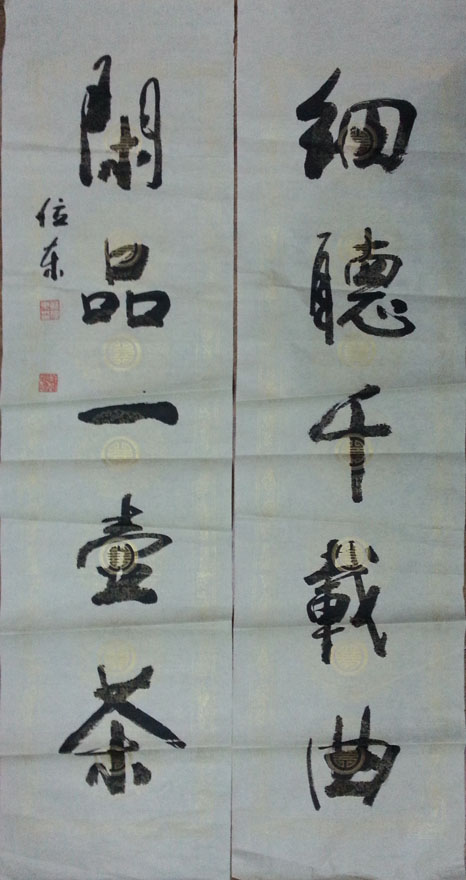 細聽千載曲
閑品一壺茶
位東